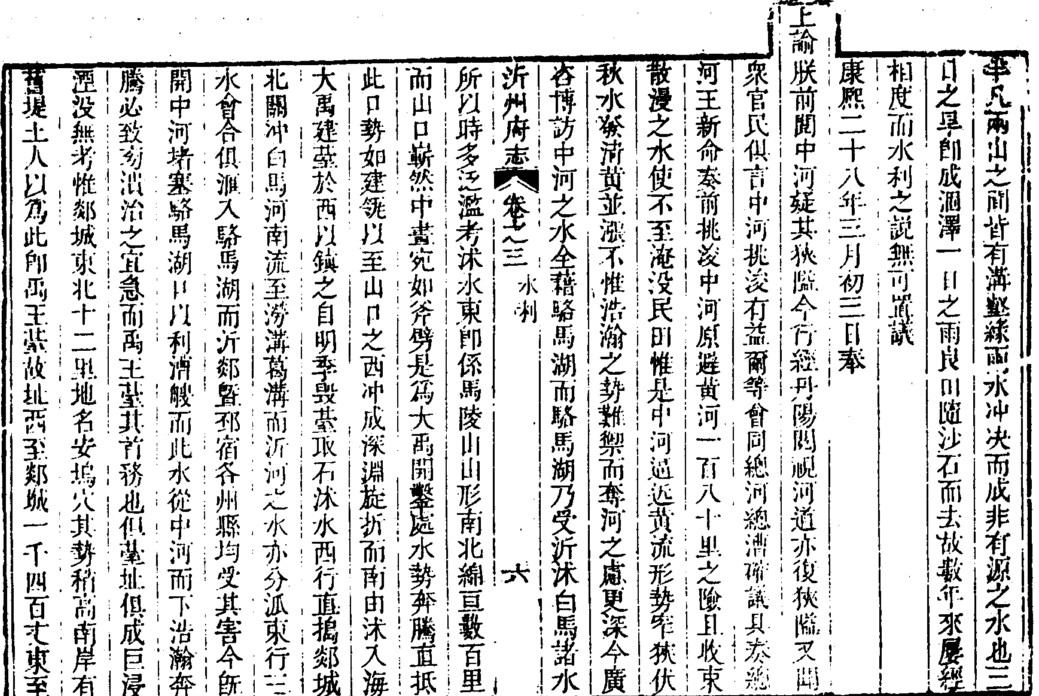 半凡兩山之間皆有溝壑緣雨水冲决而成非有源之水也三
日之旱卽成涸澤一日之雨良田隨沙石而去故數年來屢經
相度而水利之説無可置議
康熙二十八年三月初三日奉
上諭朕前聞中河疑其狹隘今行經丹陽閲視河道亦復狹隘又聞
衆官民俱言中河挑浚有益爾等會同總河總漕確議具奏總
河王新命奏前挑浚中河原避黃河一百八十里之險且收束
散漫之水使不至淹没民田惟是中河逼近黃流形勢窄狹伏
秋水發淸黃並漲不惟浩瀚之勢難禦而奪河之慮更深今廣
咨博訪中河之水全藉駱馬湖而駱馬湖乃受沂沭白馬諸水
沂州府志 卷之三 水利 六
所以時多泛濫考沭水東卽係馬陵山山形南北綿亘數百里
而山口嶄然中畫宛如斧劈是爲大禹開鑿處水勢奔騰直抵
此口勢如建瓴以至山口之西冲成深淵旋折而南由沭入海
大禹建臺於西以鎭之自明季毁臺取石沭水西行直搗郯城
北關冲白馬河南流至澇溝葛溝而沂河之水亦分派東行三
水會合俱滙入駱馬湖而沂郯曁邳宿各州縣均受其害今旣
開中河堵塞駱馬湖口以利漕艘而此水從中河而下浩瀚奔
騰必致旁潰治之宜急而禹王臺其首務也但臺址俱成巨浸
湮没無考惟郯城東北十二里地名安塢穴其勢稍高南岸有
舊堤土人以爲此卽禹王臺故址西至郯城一千四百丈東至